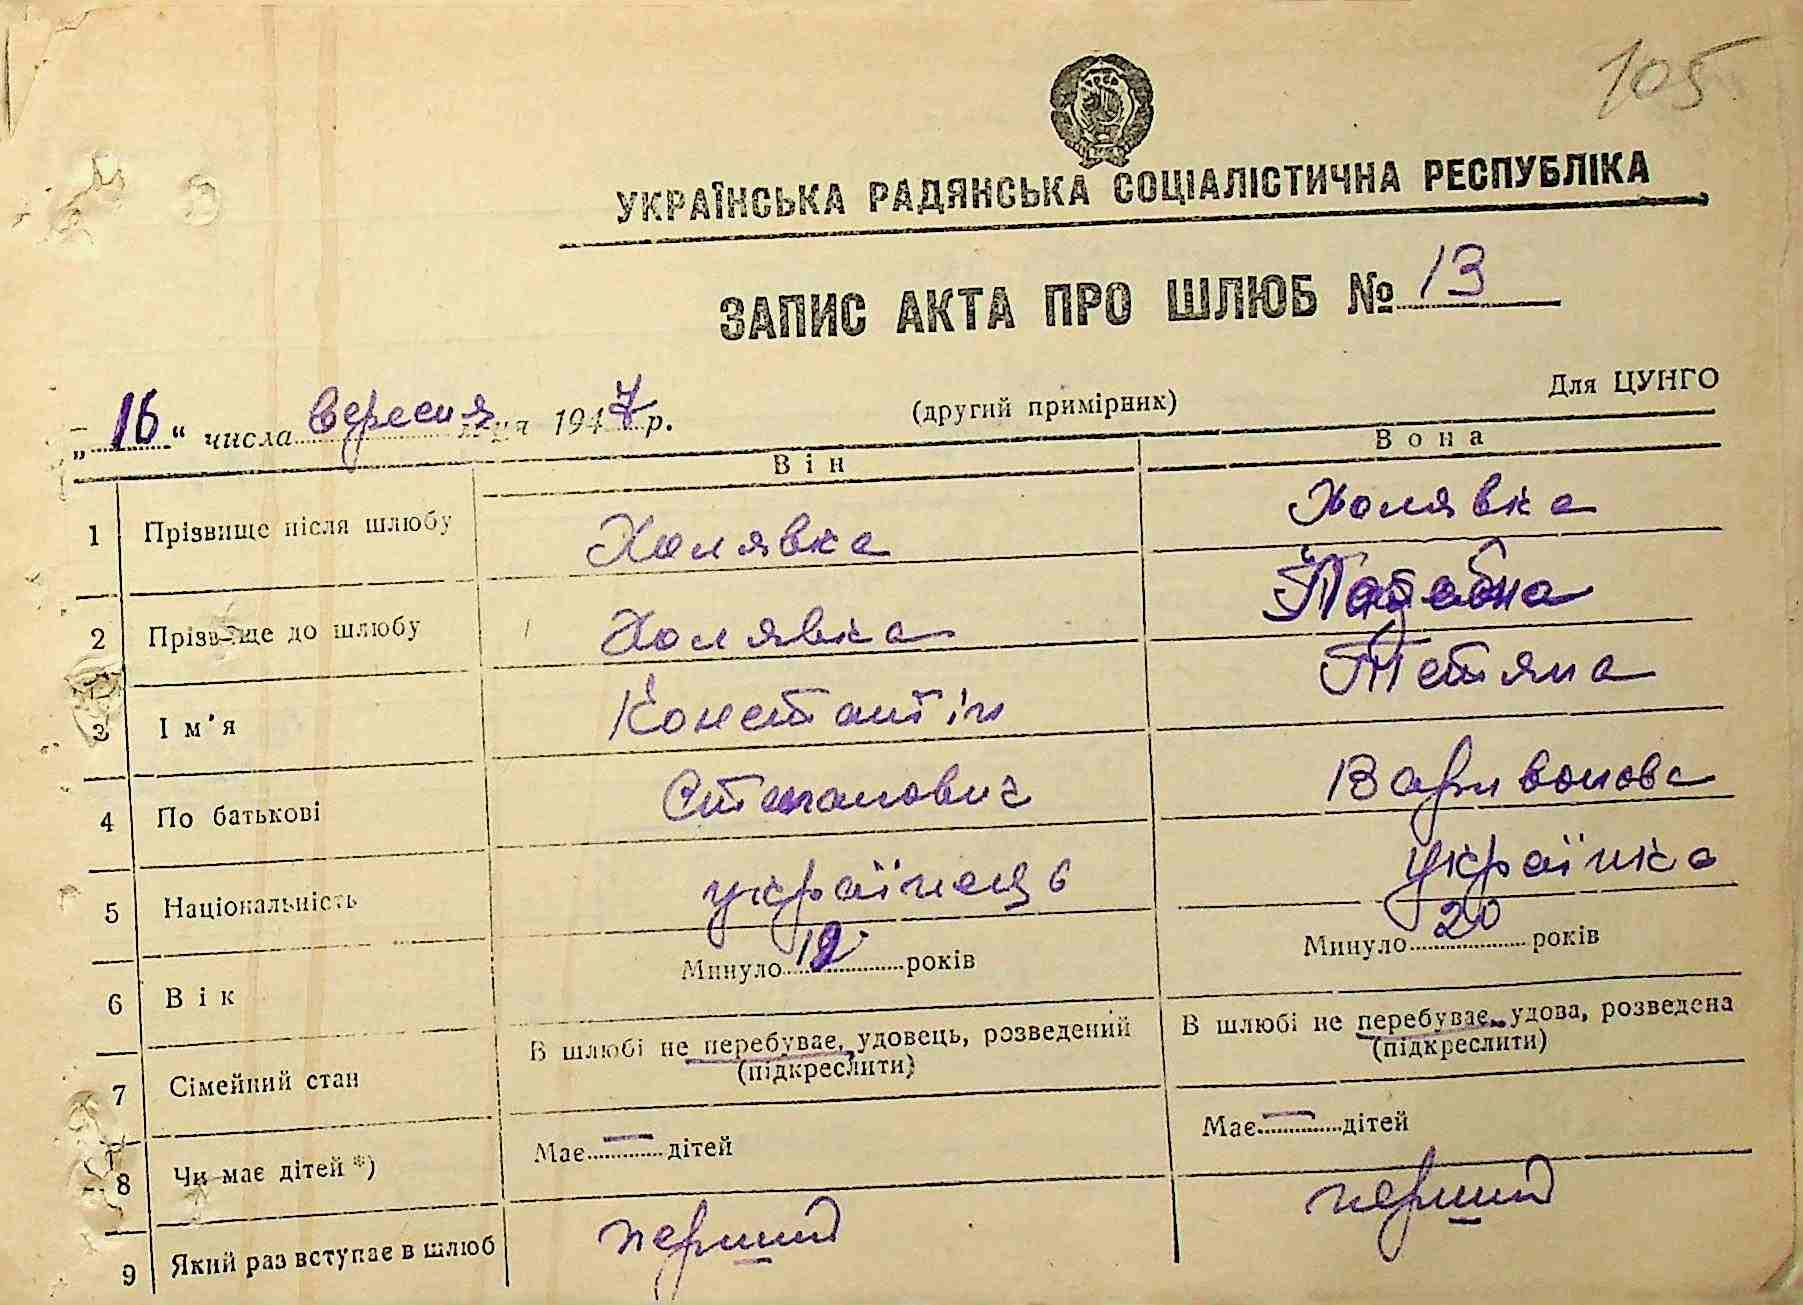 105
УКРАЇНСЬКА РАДЯНСЬКА СОЦІАЛІСТИЧНА РЕСПУБЛІКА
ЗАПИС АКТА ПРО ШЛЮБ № 13
„16“ числа вересня м-ця 1947 р.
(другий примірник)
Для ЦУНГО
Він Вона
1 Прізвище після шлюбу Холявка Холявка
2 Прізвище до шлюбу Холявка
3 Ім'я Констянтін Тетяна
4 По батькові Степанович Варивонова
5 Національність українець українка
6 Вік Минуло років Минуло 20 років
7 Сімейний стан В шлюбі не перебуває, удовець, розведений В шлюбі не перебуває, удова, розведена
(підкреслити) (підкреслити)
8 Чи має дітей *) Має — дітей Має — дітей
9 Який раз вступає в шлюб перший перший